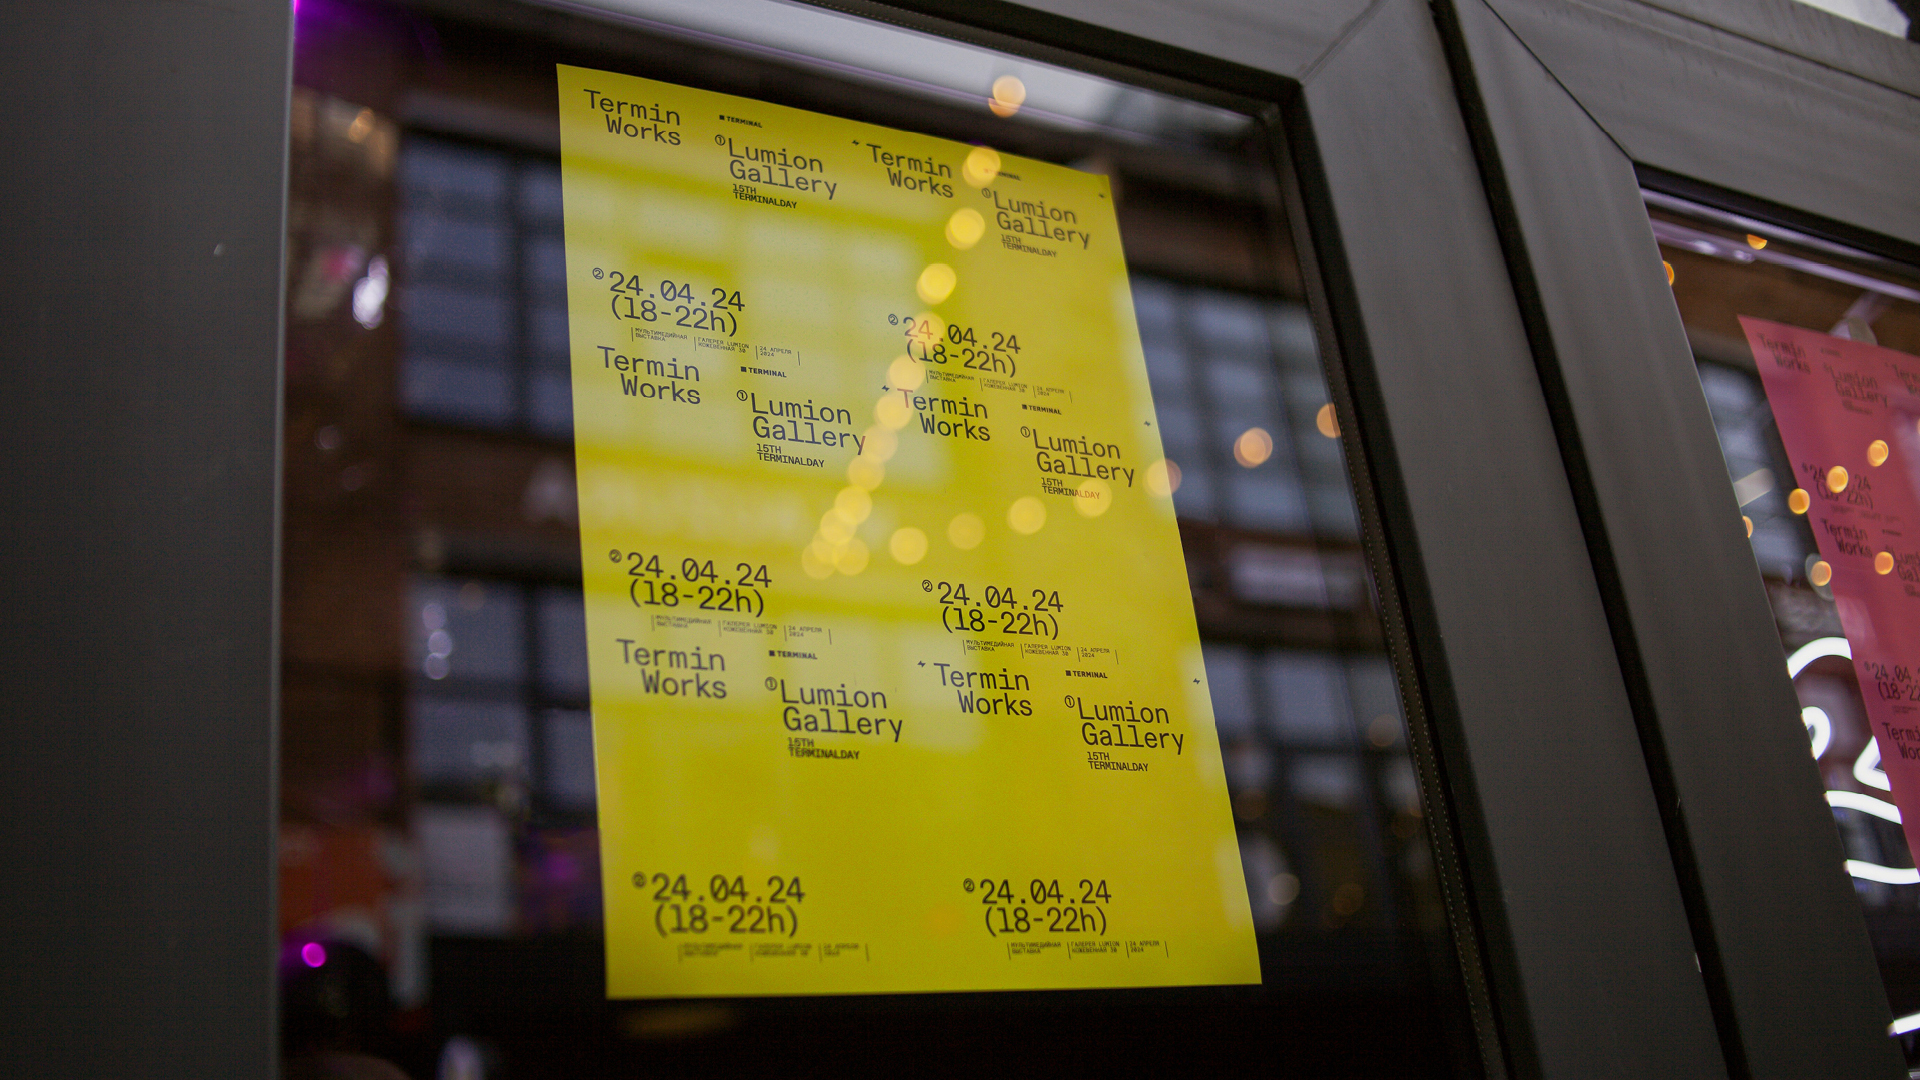 Termin
Works
TERMINAL
① Lumion
Gallery
15TH
TERMINALDAY
Termin
Works
① Lumion
Gallery
15TH
TERMINALDAY
② 24.04.24
(18-22h)
МУЛЬТИМЕДИЙНАЯ
ВЫСТАВКА
ГАЛЕРЕЯ LUMION
КОЖЕВЕННАЯ 30
24 АПРЕЛЯ
2024
② 24.04.24
(18-22h)
МУЛЬТИМЕДИЙНАЯ
ВЫСТАВКА
ГАЛЕРЕЯ LUMION
КОЖЕВЕННАЯ 30
24 АПРЕЛЯ
2024
Termin
Works
TERMINAL
① Lumion
Gallery
15TH
TERMINALDAY
Termin
Works
TERMINAL
① Lumion
Gallery
15TH
TERMINALDAY
② 24.04.24
(18-22h)
МУЛЬТИМЕДИЙНАЯ
ВЫСТАВКА
ГАЛЕРЕЯ LUMION
КОЖЕВЕННАЯ 30
24 АПРЕЛЯ
2024
② 24.04.24
(18-22h)
МУЛЬТИМЕДИЙНАЯ
ВЫСТАВКА
ГАЛЕРЕЯ LUMION
КОЖЕВЕННАЯ 30
24 АПРЕЛЯ
2024
Termin
Works
TERMINAL
① Lumion
Gallery
15TH
TERMINALDAY
Termin
Works
TERMINAL
① Lumion
Gallery
15TH
TERMINALDAY
② 24.04.24
(18-22h)
② 24.04.24
(18-22h)
МУЛЬТИМЕДИЙНАЯ
ВЫСТАВКА
ГАЛЕРЕЯ LUMION
КОЖЕВЕННАЯ 30
24 АПРЕЛЯ
2024
Termin
Works
Lumion
Gallery
Termin
Works